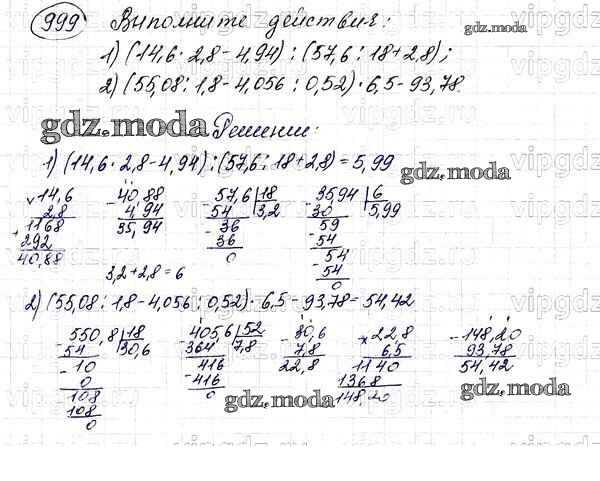 999 Выполните действия:
1) (14,6 · 2,8 - 4,94) : (57,6 : 18 + 2,8);
2) (55,08 : 1,8 - 4,056 : 0,52) · 6,5 - 93,78.
gdz.moda Решение:
1) (14,6 · 2,8 - 4,94) : (57,6 : 18 + 2,8) = 5,99
14,6 - 40,88 - 57,6 | 18 - 35,94 | 6
2,8 4,94 54 3,2 30 5,99
1168 35,94 - 36 59
+ 292 36 - 54
40,88 0 54
- 54
3,2 + 2,8 = 6 0
2) (55,08 : 1,8 - 4,056 : 0,52) · 6,5 - 93,78 = 54,42
- 550,8 | 18 - 405,6 | 52 - 30,6 × 22,8 - 148,20
54 30,6 364 7,8 7,8 6,5 93,78
- 10 416 22,8 1140 54,42
0 - 416 1368
108 0 148,20
108
0
gdz.moda
gdz.moda
gdz.moda
gdz.moda
vipgdz.ru